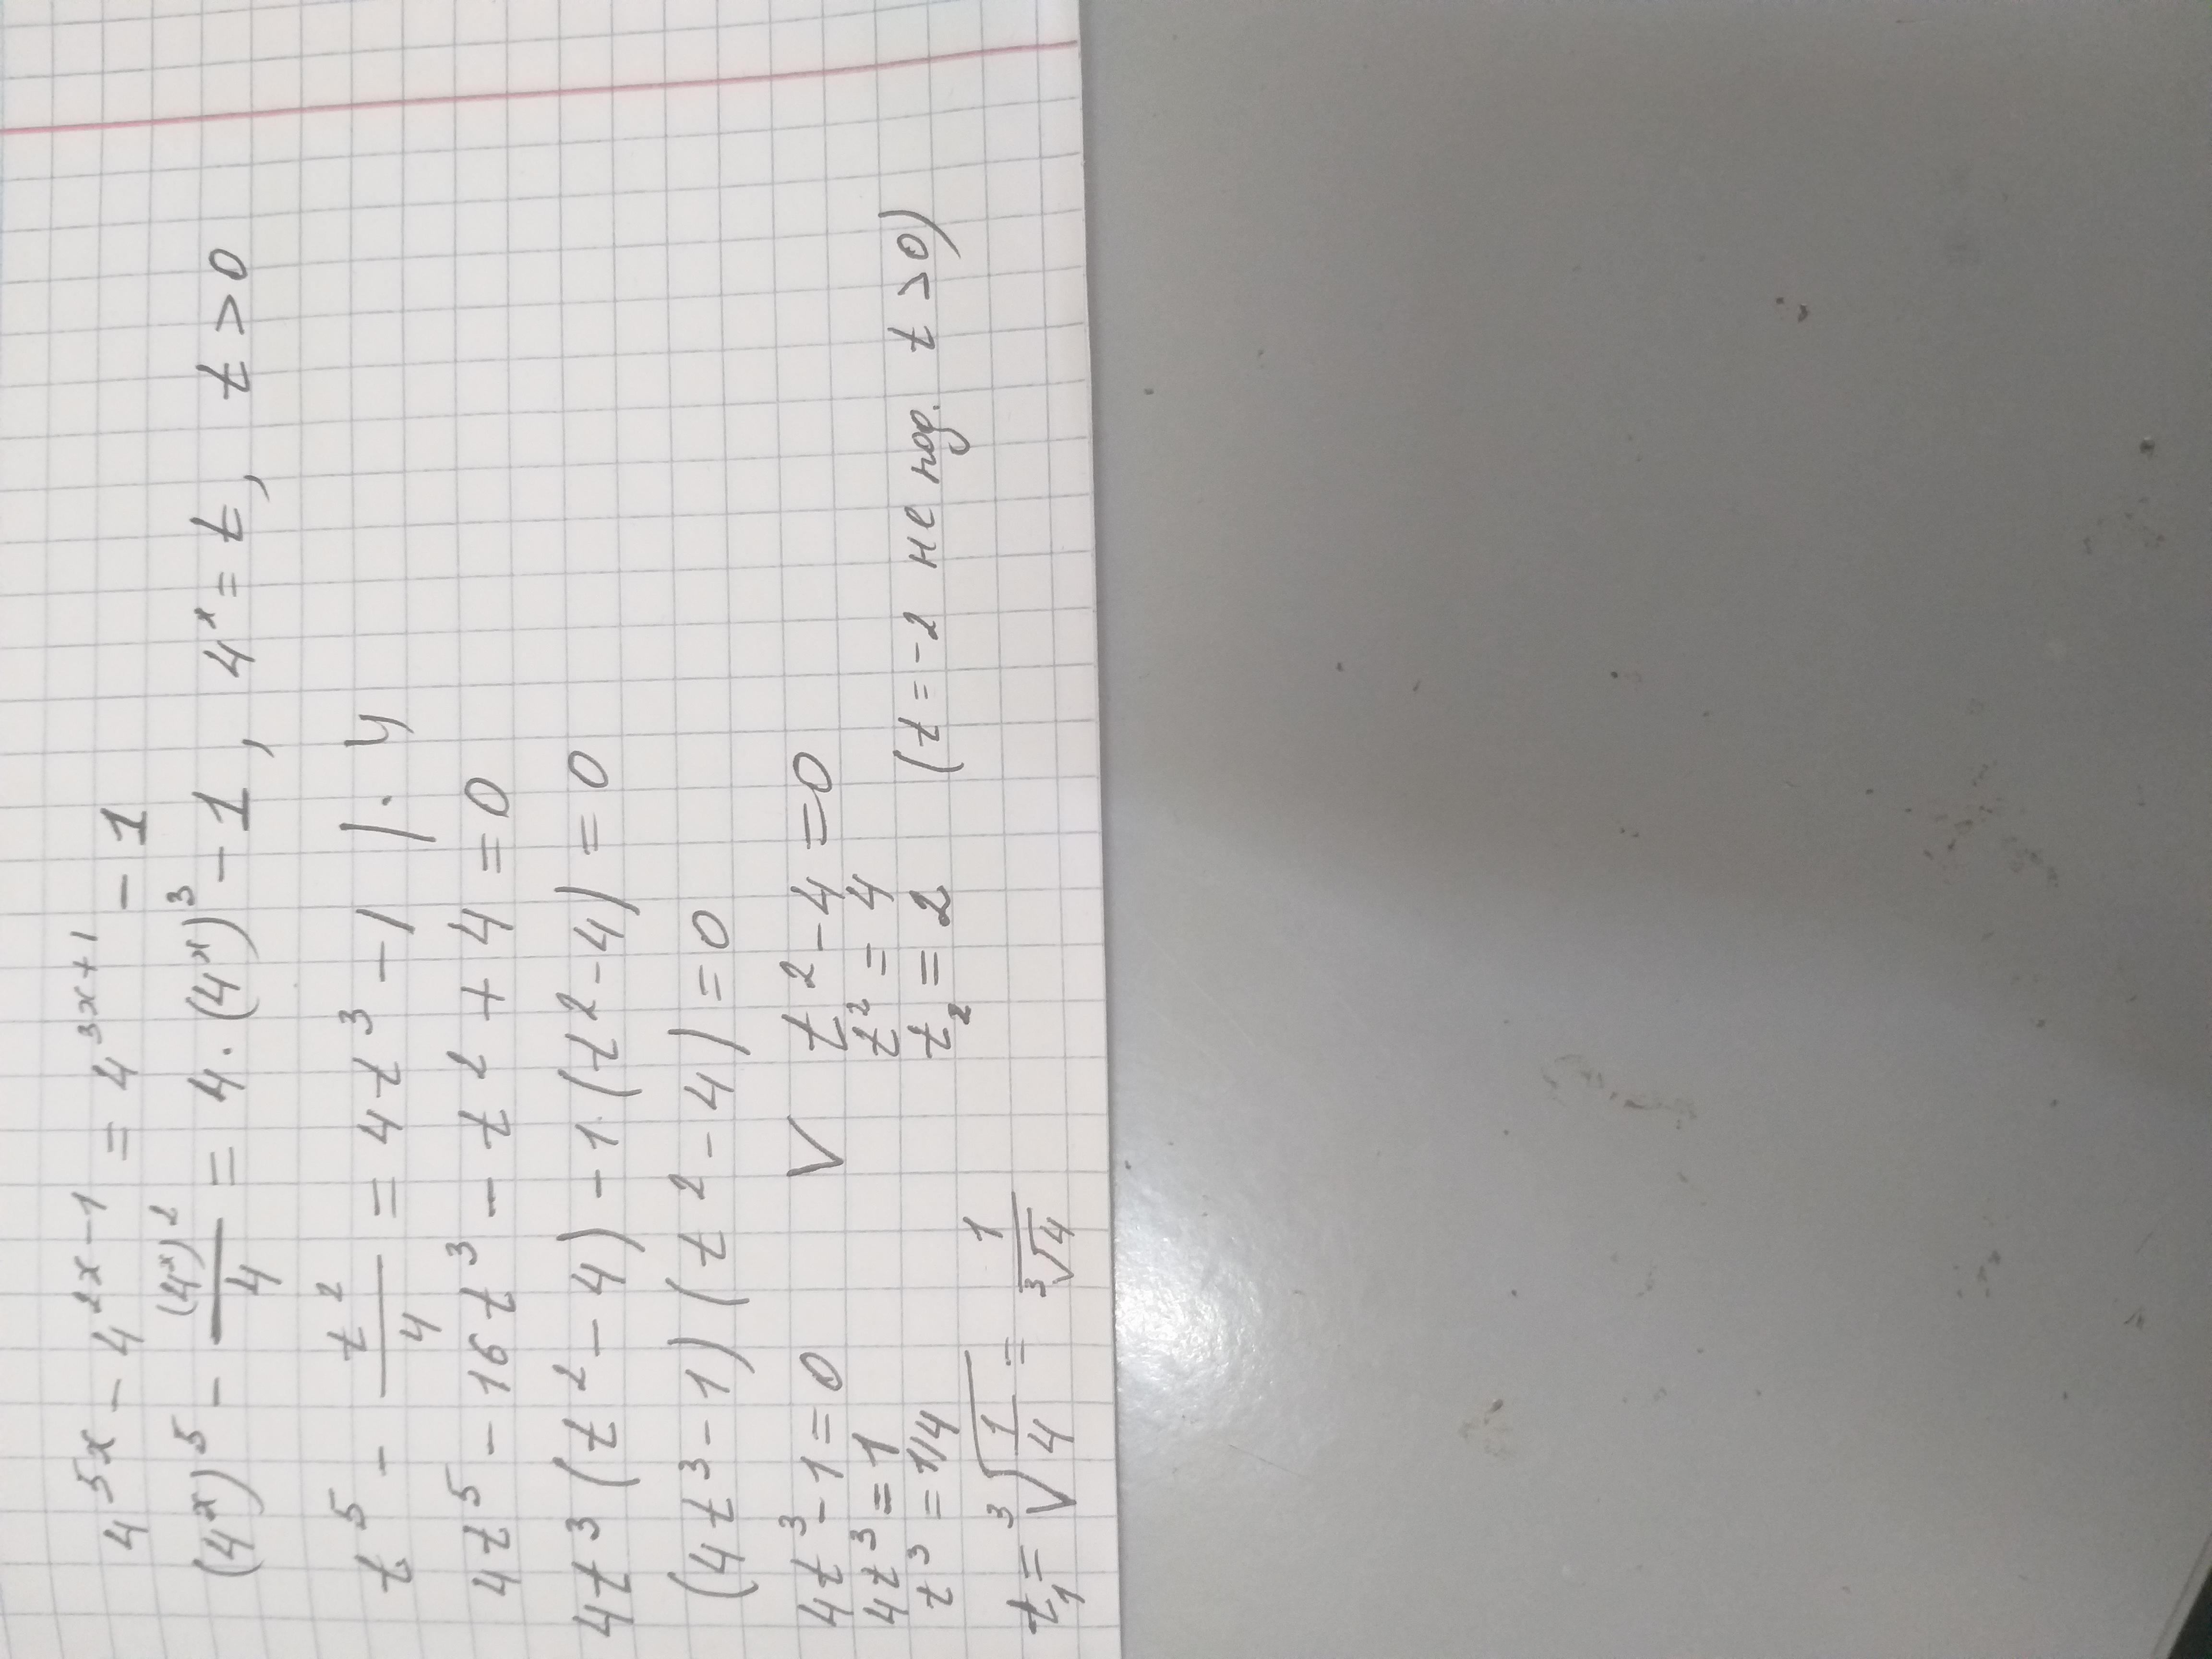 4^{5x} - 4^{2x-1} = 4^{3x+1} - 1
(4^x)^5 - \frac{(4^x)^2}{4} = 4 · (4^x)^3 - 1, 4^x = t, t > 0
t^5 - \frac{t^2}{4} = 4t^3 - 1 | · 4
4t^5 - 16t^3 - t^2 + 4 = 0
4t^3(t^2 - 4) - 1·(t^2 - 4) = 0
(4t^3 - 1)(t^2 - 4) = 0
4t^3 - 1 = 0 V t^2 - 4 = 0
4t^3 = 1 t^2 = 4
t^3 = 1/4 t_2 = 2 (t = -2 не под. t > 0)
t_1 = \sqrt[3]{\frac{1}{4}} = \frac{1}{\sqrt[3]{4}}